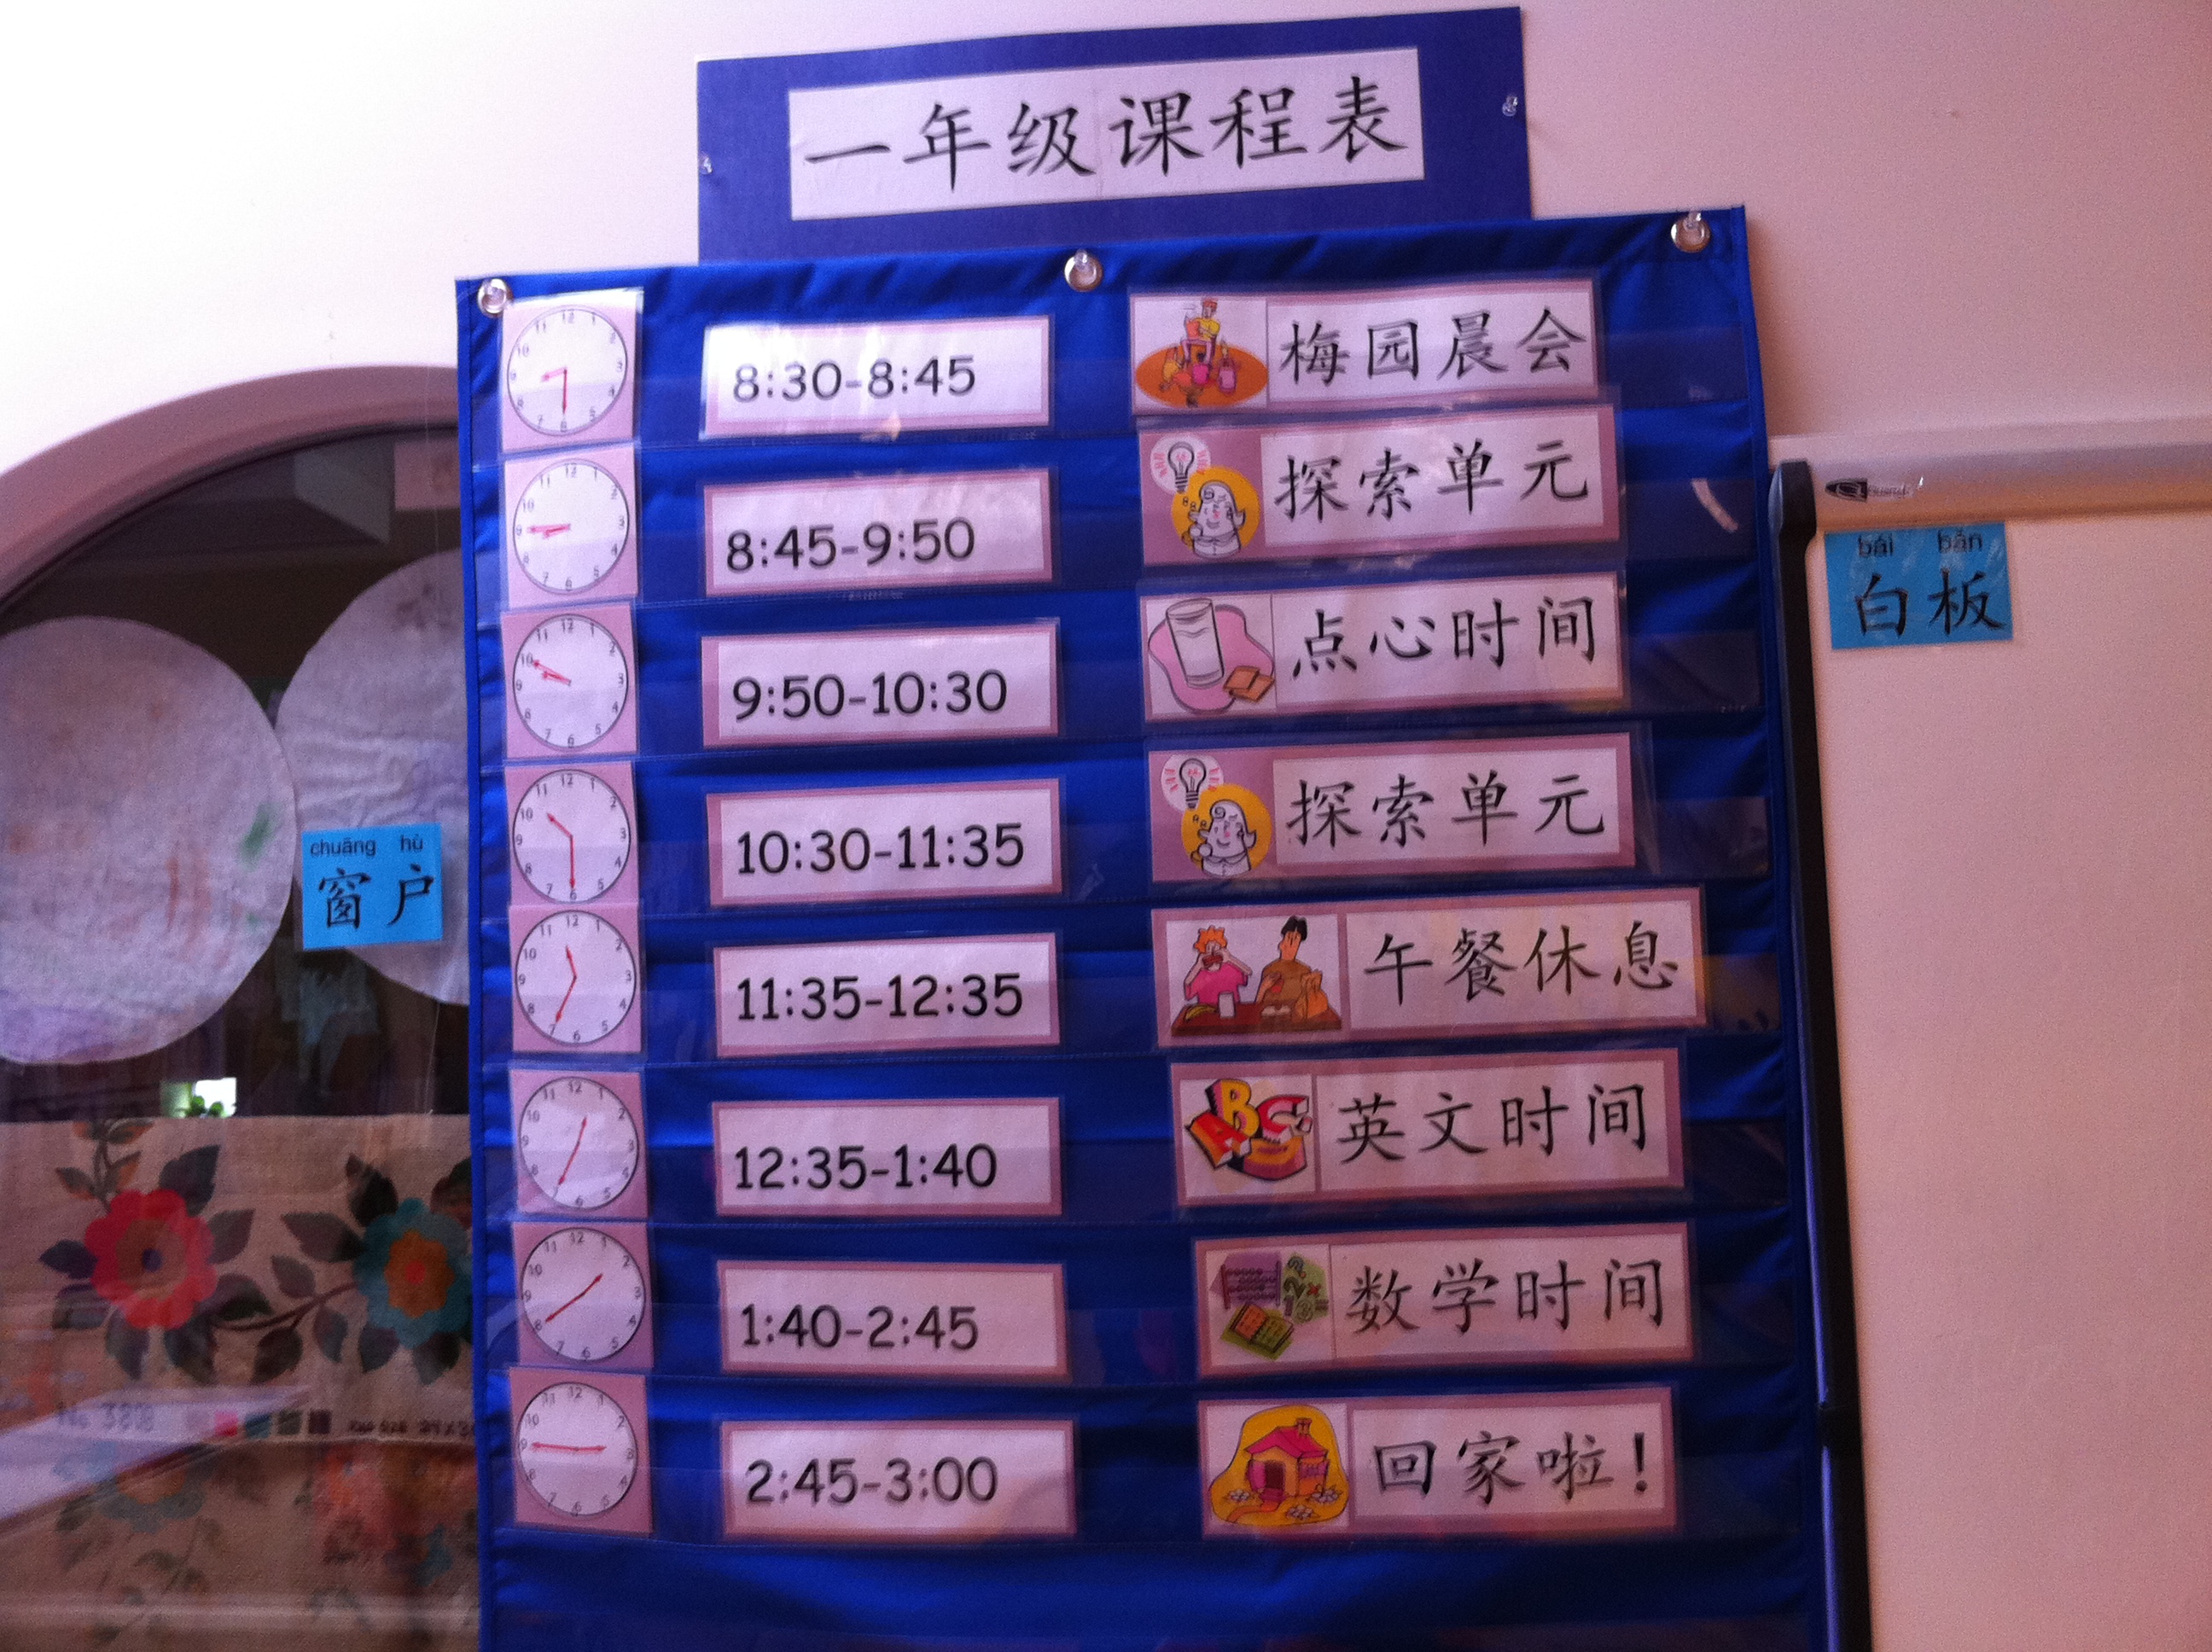 一年级课程表
8:30-8:45 梅园晨会
8:45-9:50 探索单元
9:50-10:30 点心时间
10:30-11:35 探索单元
11:35-12:35 午餐休息
12:35-1:40 英文时间
1:40-2:45 数学时间
2:45-3:00 回家啦!
chuāng hù
窗户
bái bǎn
白板
ABC